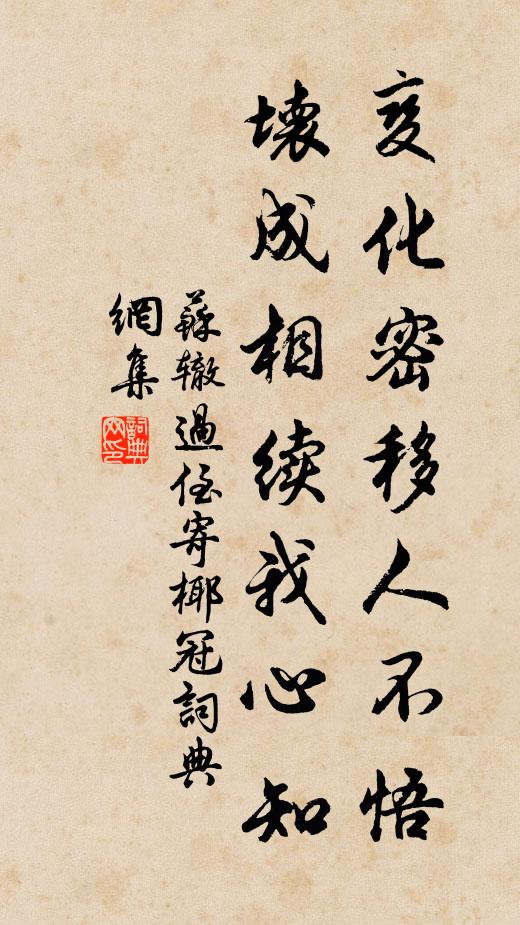 变化密移人不悟
壞成相續我心知
蘇辙過侄寄椰冠詞典
網集
詞典網印